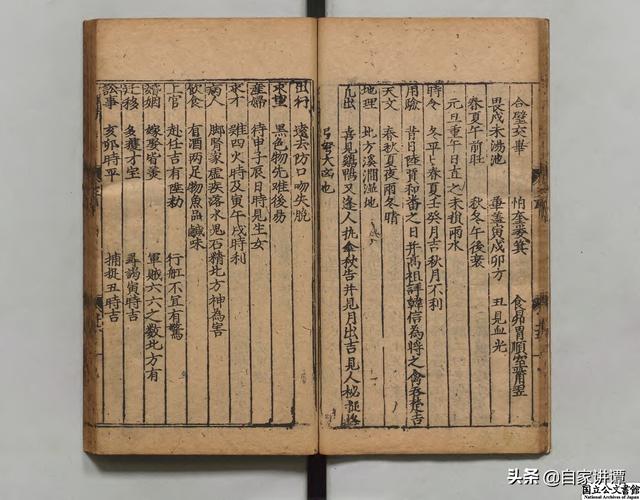 合璧交畢　怕奎婁箕　食昴胃順室觜翌
畏戌未湯池　喜寅戌卯方　丑見血光
春夏午前旺　秋冬午後衰
元旦重午日直之未損雨水
時令　冬平春夏壬癸月吉秋月不利
用驗　昔日陸賈和番之日并高祖評韓信為將之禽吉
天文　春秋夏夜雨冬晴
地理　北方溪澗濕地
九出　喜見鷄鴨又逢人抗傘秋吉并見月出吉見人秘
大凶也
出行　遠去防口吻失脫
求望　黑色物先难後易
産婦　待甲子辰日時見生女
求才　雖四火時及寅午戌時利
病人　脚腎家虛疾落水鬼石精北方神為害
飲食　有酒两足物魚品鹹味
上官　赴任吉有陞勅　行舡不宜有驚
婚姻　嫁娶皆羙　軍賊六六之数北方有
迁移　多獲才宝　尋謁寅時吉
訟事　亥卯時平　捕捉丑時吉
头条 @自家讲谭
国立公文書館
National Archives of Japan